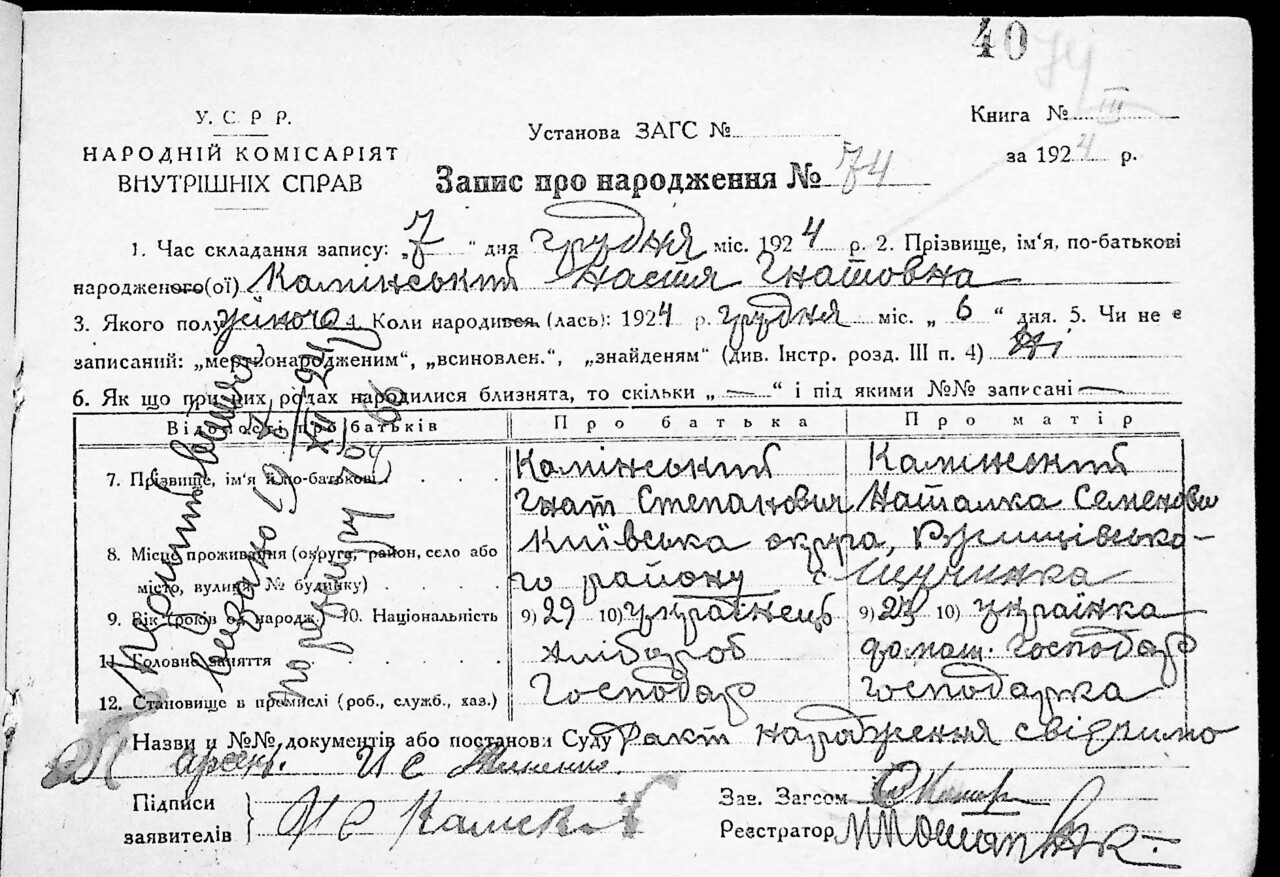 40 74
У. С. Р. Р.
НАРОДНІЙ КОМІСАРІЯТ
ВНУТРІШНІХ СПРАВ
Установа ЗАГС №
Книга № III
за 1924 р.
Запис про народження № 74
1. Час складання запису: „7“ дня грудня міс. 1924 р. 2. Прізвище, ім'я, по-батькові
народженого(ої) Камінський Настя Гнатовна
3. Якого полу жіночо 4. Коли народився (лась): 1924 р. грудня міс. „6“ дня. 5. Чи не є
записаний: „мертвонародженим“, „всиновлен.“, „знайденям“ (див. Інстр. розд. III п. 4) Ні
6. Як що при цих родах народилися близнята, то скільки „—“ і під якими №№ записані —
Відомості про батьків Про батька Про матір
7. Прізвище, ім'я й по-батькові Камінський Камінський
Гнат Степанович Наталка Семенови
8. Місце проживання (округа, район, село або Київська округа, Ржищівсько-
місто, вулиця, № будинку) го району с Щучинка
9. Вік (років од народж.) 10. Національність 9) 29 10) українець 9) 10) українка
11. Головне заняття хлібороб домаш. господар
12. Становище в промислі (роб., служб., хаз.) господар господарка
Назви и №№ документів або постанови Суду Факт народження свідчимо
И С
Підписи
заявителів И С
Зав. Загсом
Реєстратор